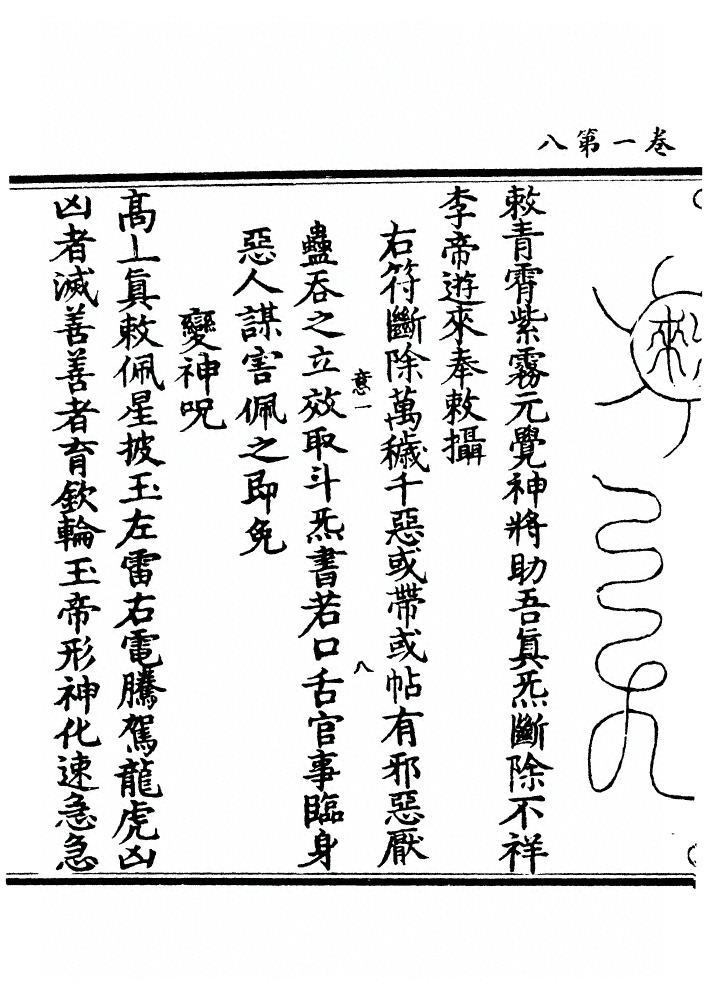 卷一第八
敕青霄紫霧元覺神將助吾眞炁斷除不祥
李帝遊來奉敕攝
右符斷除萬穢千惡或帶或帖有邪惡厭
意一
八
蠱吞之立效取斗炁書若口舌官事臨身
惡人謀害佩之即免
變神呪
髙上眞敕佩星披玉左雷右電騰駕龍虎凶
凶者滅善善者育欽輪玉帝形神化速急急